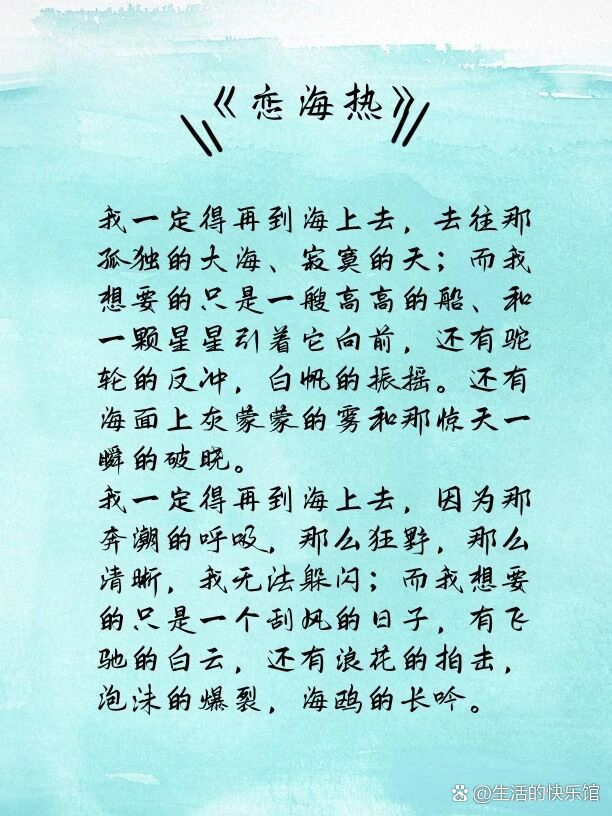 《恋海热》
我一定得再到海上去，去往那
孤独的大海、寂寞的天；而我
想要的只是一艘高高的船、和
一颗星星引着它向前，还有驼
轮的反冲，白帆的振摇。还有
海面上灰蒙蒙的雾和那惊天一
瞬的破晓。
我一定得再到海上去，因为那
奔潮的呼吸，那么狂野，那么
清晰，我无法躲闪；而我想要
的只是一个刮风的日子，有飞
驰的白云，还有浪花的拍击，
泡沫的爆裂，海鸥的长吟。
@生活的快乐馆